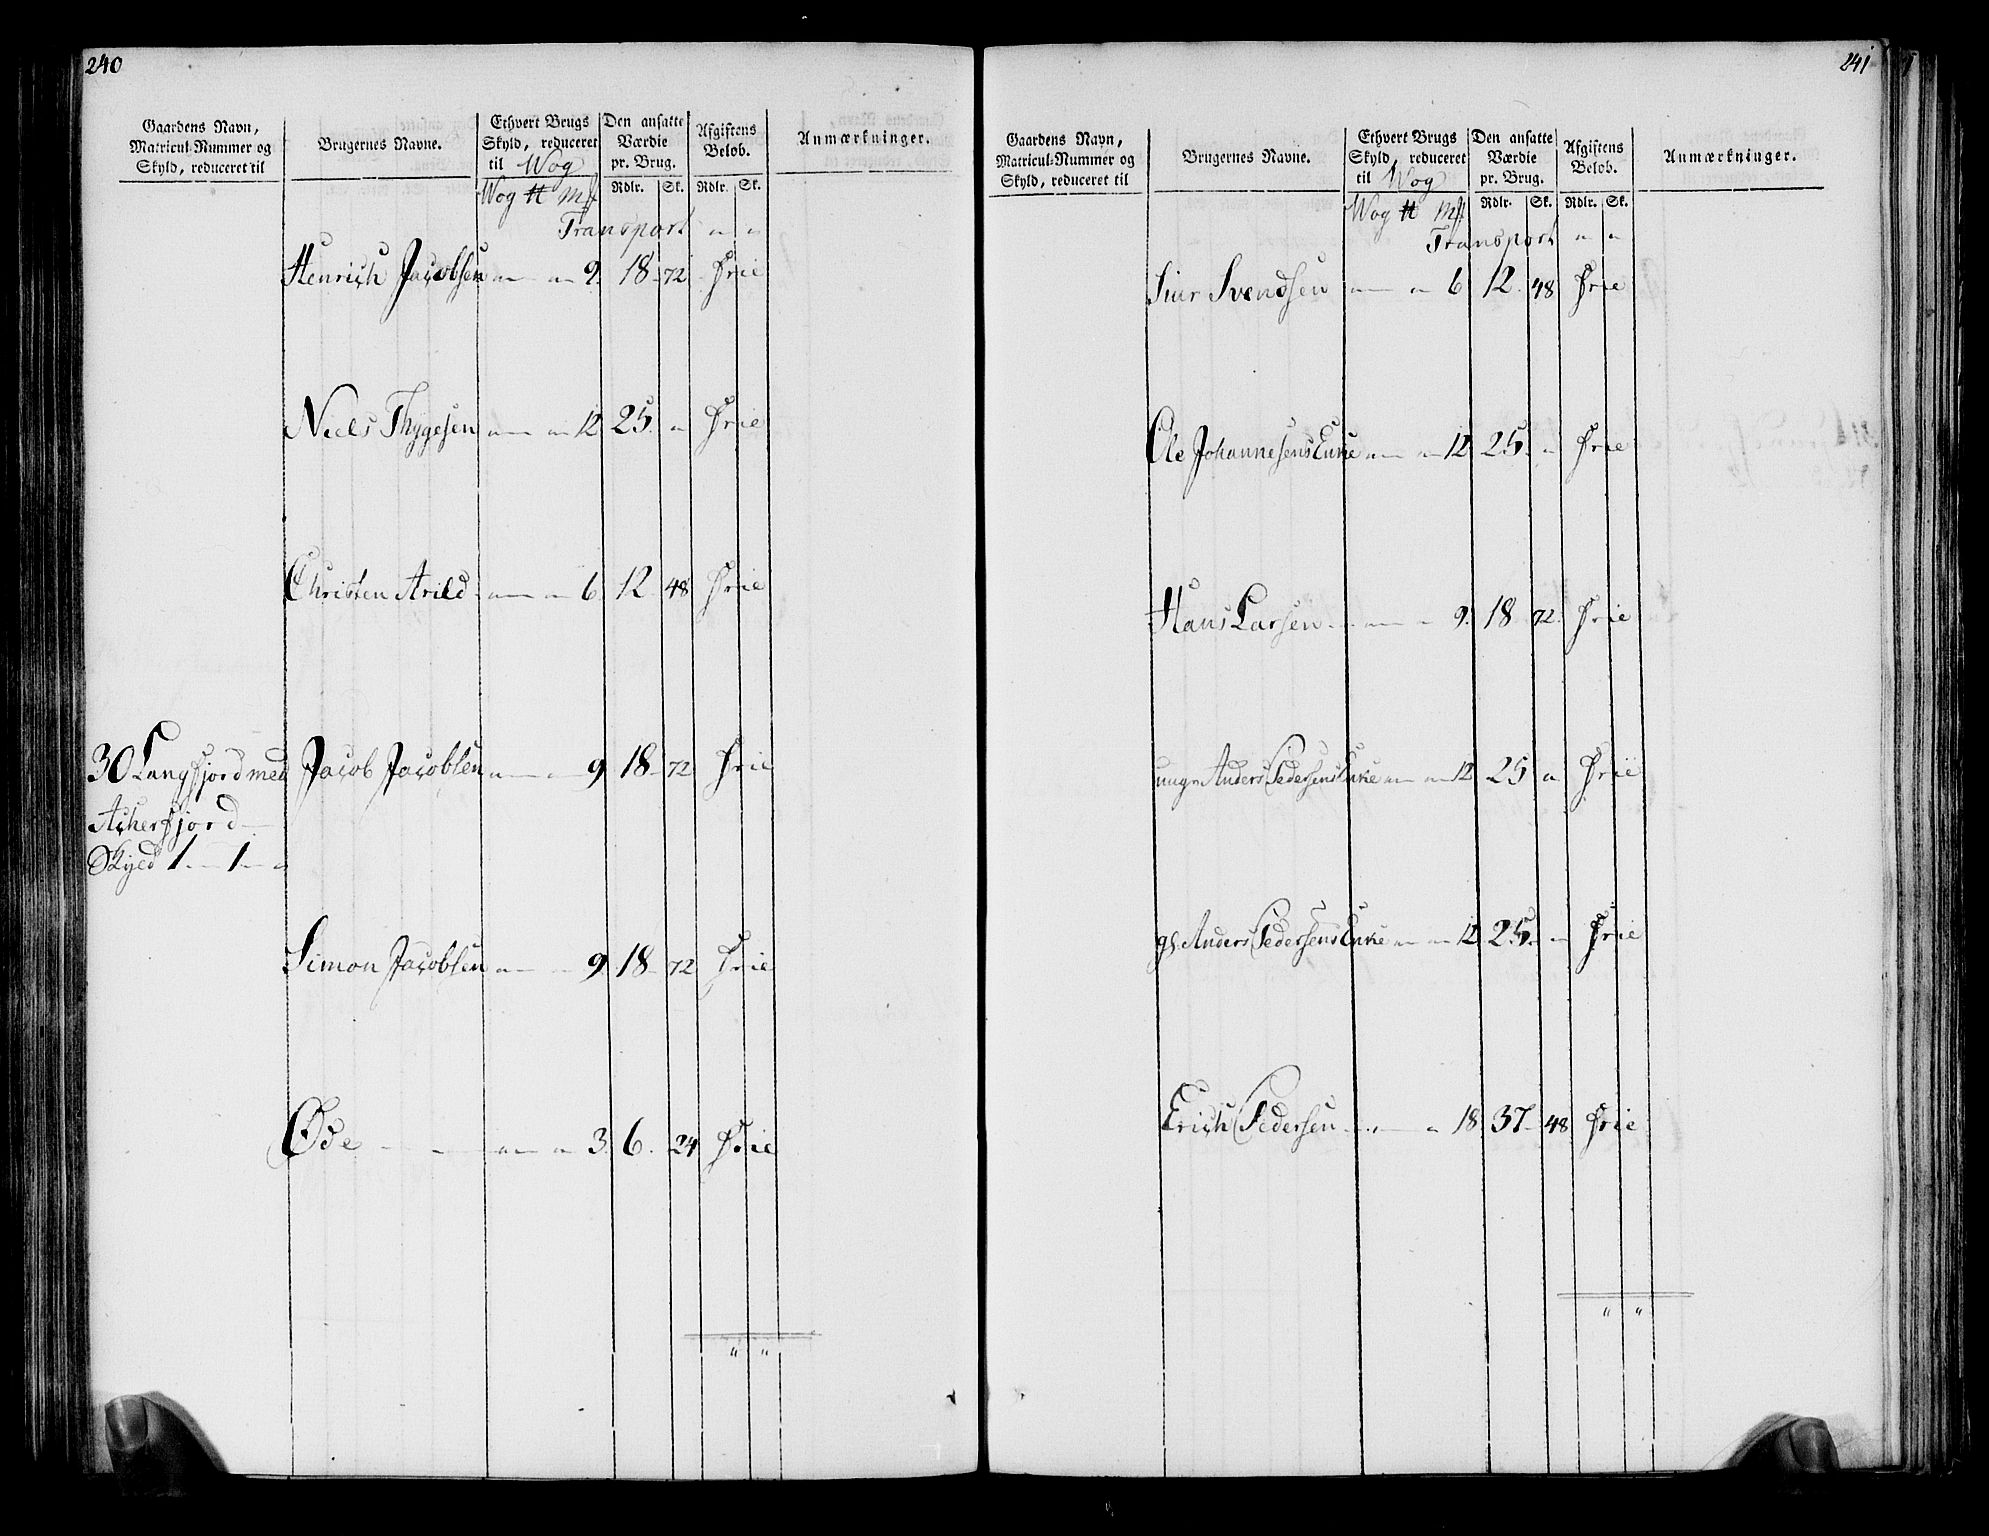 240
Gaardens Navn,
Matricul-Nummer og
Skyld, reduceret til
Brugernes Navne.
Ethvert Brugs
Skyld, reduceret
til Wog
Den ansatte
Værdie
pr. Brug.
Afgiftens
Beløb.
Anmærkninger.
Wog ℔ mk Rdlr. Sk. Rdlr. Sk.
Transport " "
Henrich Jacobsen " " 9. 18 72 Frie
Niels Thygesen " " 12 25. " Frie
Christen Arild " " 6. 12 48 Frie
30 Langfjord med Jacob Jacobsen " " 9 18 72 Frie
Ackerfjord
Skyld 1 - 1 - "
Simon Jacobsen " " 9 18 72 Frie
Øde " " 3. 6. 24 Frie
" "
241
Gaardens Navn,
Matricul-Nummer og
Skyld, reduceret til
Brugernes Navne.
Ethvert Brugs
Skyld, reduceret
til Wog
Den ansatte
Værdie
pr. Brug.
Afgiftens
Beløb.
Anmærkninger.
Wog ℔ mk Rdlr. Sk. Rdlr. Sk.
Transport " "
Siur Svendsen " " 6 12. 48 Frie
Ole Johannesens Enke " " 12 25. " Frie
Hans Larsen " " 9. 18 72. Frie
ungr Anders Pedersens Enke " " 12 25 " Frie
gl. Anders Pedersens Enke " " 12 25. " Frie
Erich Pedersen " " 18. 37 48 Frie
" "